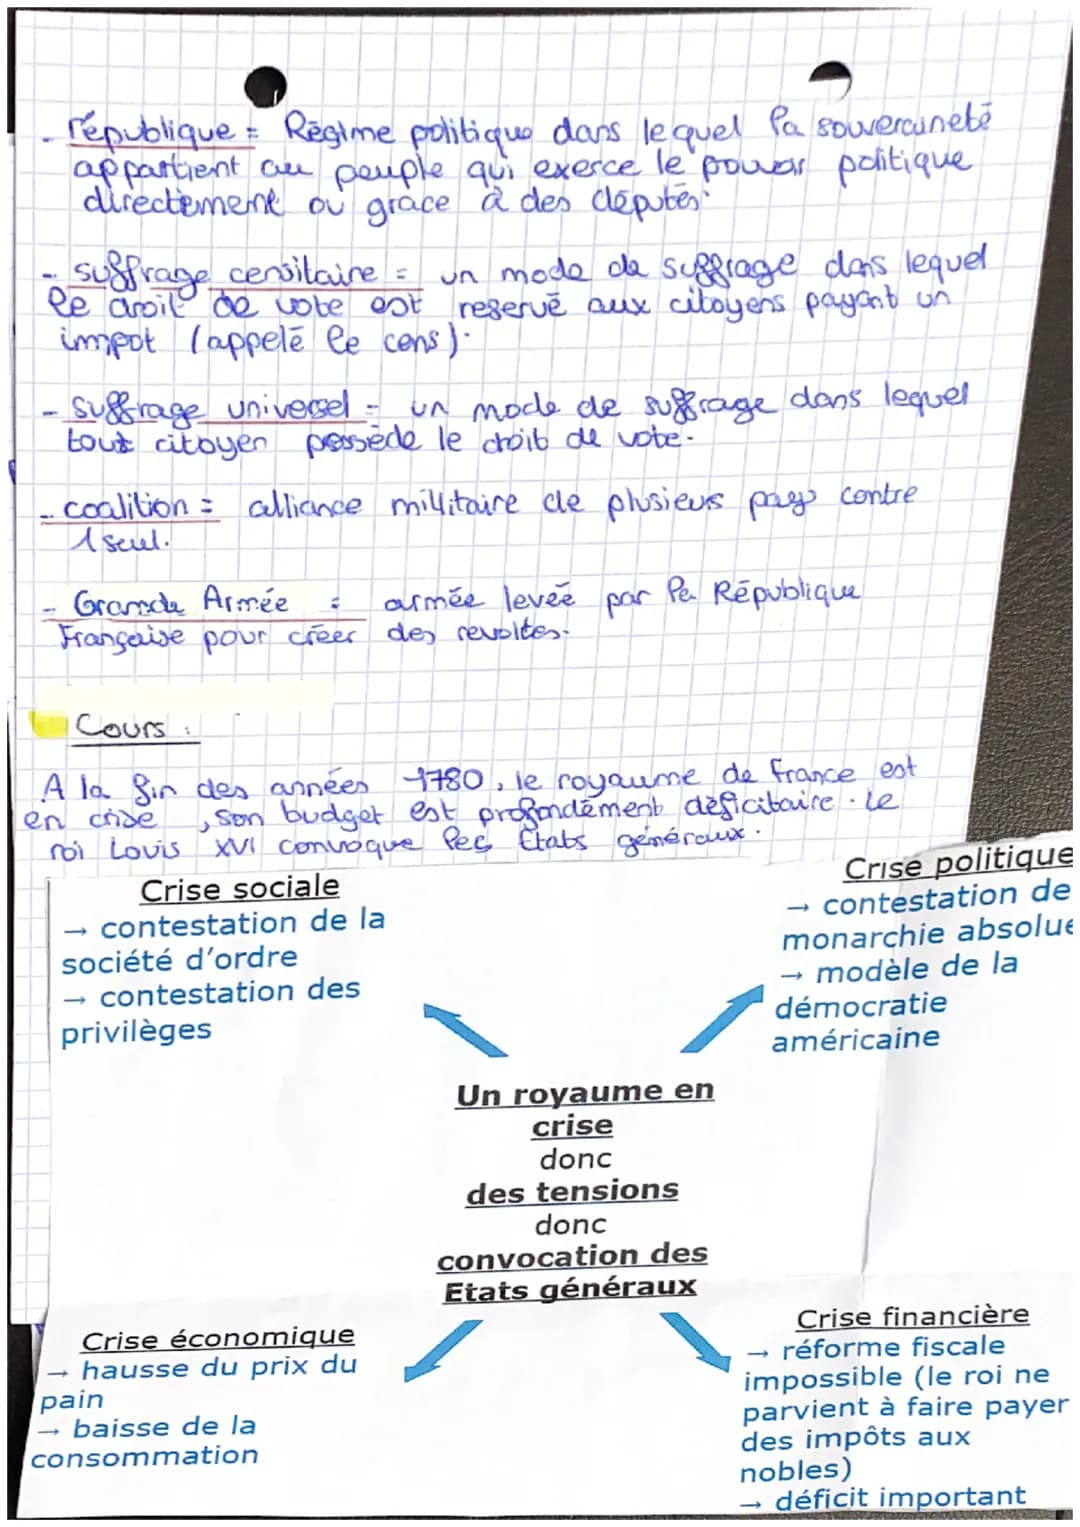 - république = Régime politique dans lequel la souveraineté
appartient au peuple qui exerce le pouvoir politique
directement ou grace à des députés.
- suffrage censitaire = un mode de suffrage dans lequel
le droit de vote est reservé aux citoyens payant un
impot (appelé le cens).
- suffrage universel = un mode de suffrage dans lequel
tout citoyen possède le droit de vote.
- coalition = alliance millitaire de plusieurs pays contre
1 seul.
- Grande Armée = armée levée par la République
Française pour créer des revoltes.
Cours :
A la fin des années 1780, le royaume de France est
en crise, son budget est profondément déficitaire. Le
roi Louis XVI convoque les Etats généraux.
Crise sociale
→ contestation de la
société d'ordre
→ contestation des
privilèges
Crise politique
→ contestation de
monarchie absolue
→ modèle de la
démocratie
américaine
Un royaume en
crise
donc
des tensions
donc
convocation des
Etats généraux
Crise économique
→ hausse du prix du
pain
→ baisse de la
consommation
Crise financière
→ réforme fiscale
impossible (le roi ne
parvient à faire payer
des impôts aux
nobles)
→ déficit important